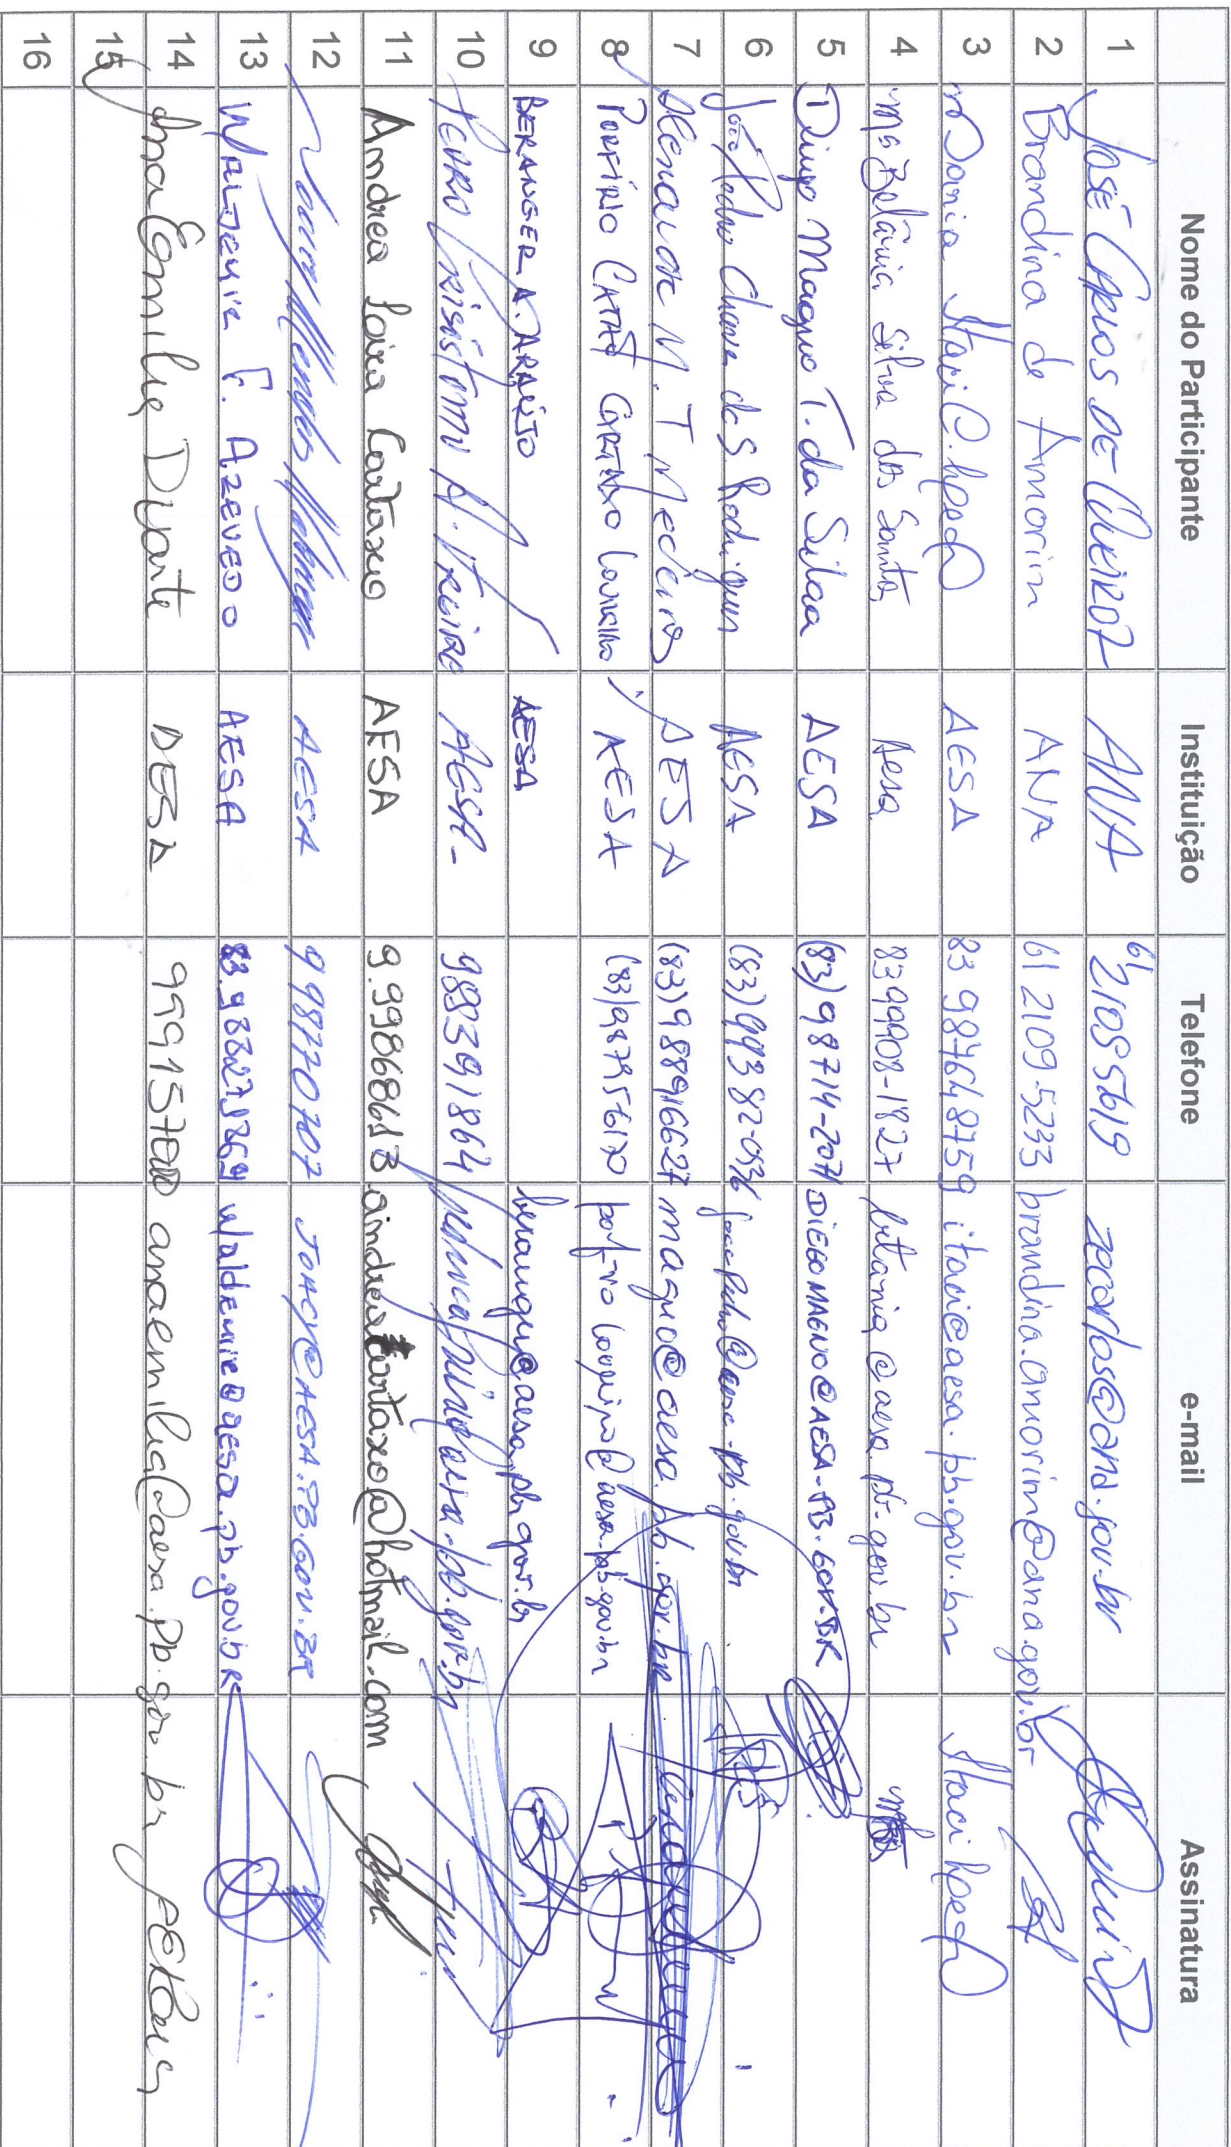 Nome do Participante Instituição Telefone e-mail Assinatura
1 José Carlos de Queiroz ANA 61 21095619 zecarlos@ana.gov.br
2 Brandina de Amorim ANA 61 2109-5233 brandina.amorim@ana.gov.br
3 Itaci C. AESA 83 987648759 itaci@aesa.pb.gov.br Itaci
4 Mª Betânia Silva dos Santos Aesa 83 99908-1827 betania@aesa.pb.gov.br
5 Diego Magno T. da Silva AESA (83) 98714-2071 DIEGOMAGNO@AESA.PB.GOV.BR
6 João Pedro Chaves de S. Rodrigues AESA (83) 99382-0536 joaopedro@aesa.pb.gov.br
7 Alexandre M. T. Medeiros AESA (83) 988916627 magno@aesa.pb.gov.br
8 PORFÍRIO CATÃO CARTAXO LOUREIRO AESA (83) 987956170 porfirio loureiro@aesa.pb.gov.br
9 BERANGER A. ARAÚJO AESA beranger@aesa.pb.gov.br
10 PEDRO CRISÓSTOMO A. FREIRE AESA- 988391864
11 Andrea Lira Cartaxo AESA 9.99868613 andreacartaxo@hotmail.com
12 AESA 998170707 JOACY@AESA.PB.GOV.BR
13 WALDEMIR F. AZEVEDO AESA 83.988273269 waldemir@aesa.pb.gov.br
14 Ana Emilia Duarte AESA anaemilia@aesa.pb.gov.br
15
16